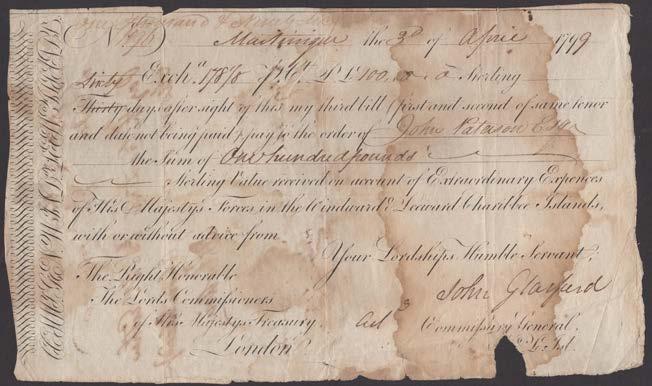 Thousand & Ninety
No. 1096 Martinique the 3d of April 1799
Exch. 178/8 £100,,0,,0 Sterling
Sixty
Thirty days after sight of this my third bill (first and second of same tenor
and date not being paid) pay to the order of John Paterson Esqr
the Sum of One hundred pounds
Sterling Value received on account of Extraordinary Expences
of His Majesty's Forces in the Windward & Leeward Charibbee Islands,
with or without advice from
Your Lordships Humble Servant,
The Right Honorable
The Lords Commissioners John Glasfurd
of His Majesty's Treasury, Commissary General,
London Isl.